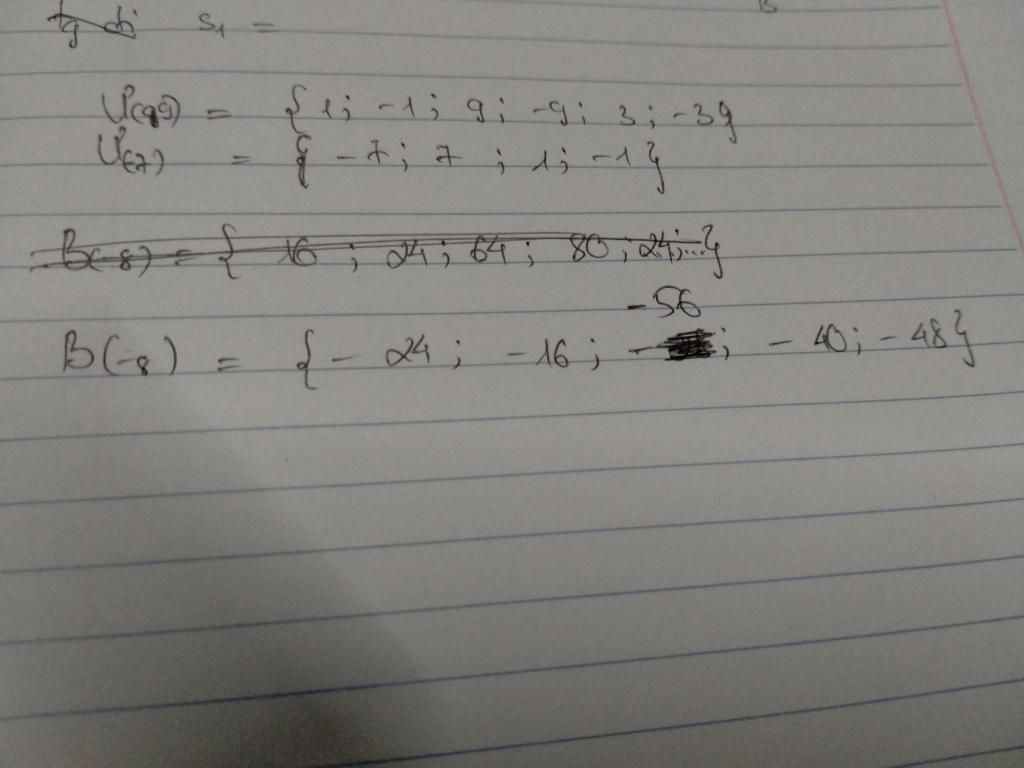 S1 =
Ư(99) = {1; -1; 9; -9; 3; -3}
Ư(7) = {-7; 7; 1; -1}
B(-8) = { 16; 24; 64; 80; 24;...}
-56
B(-8) = {- 24; -16; -; - 40; - 48}